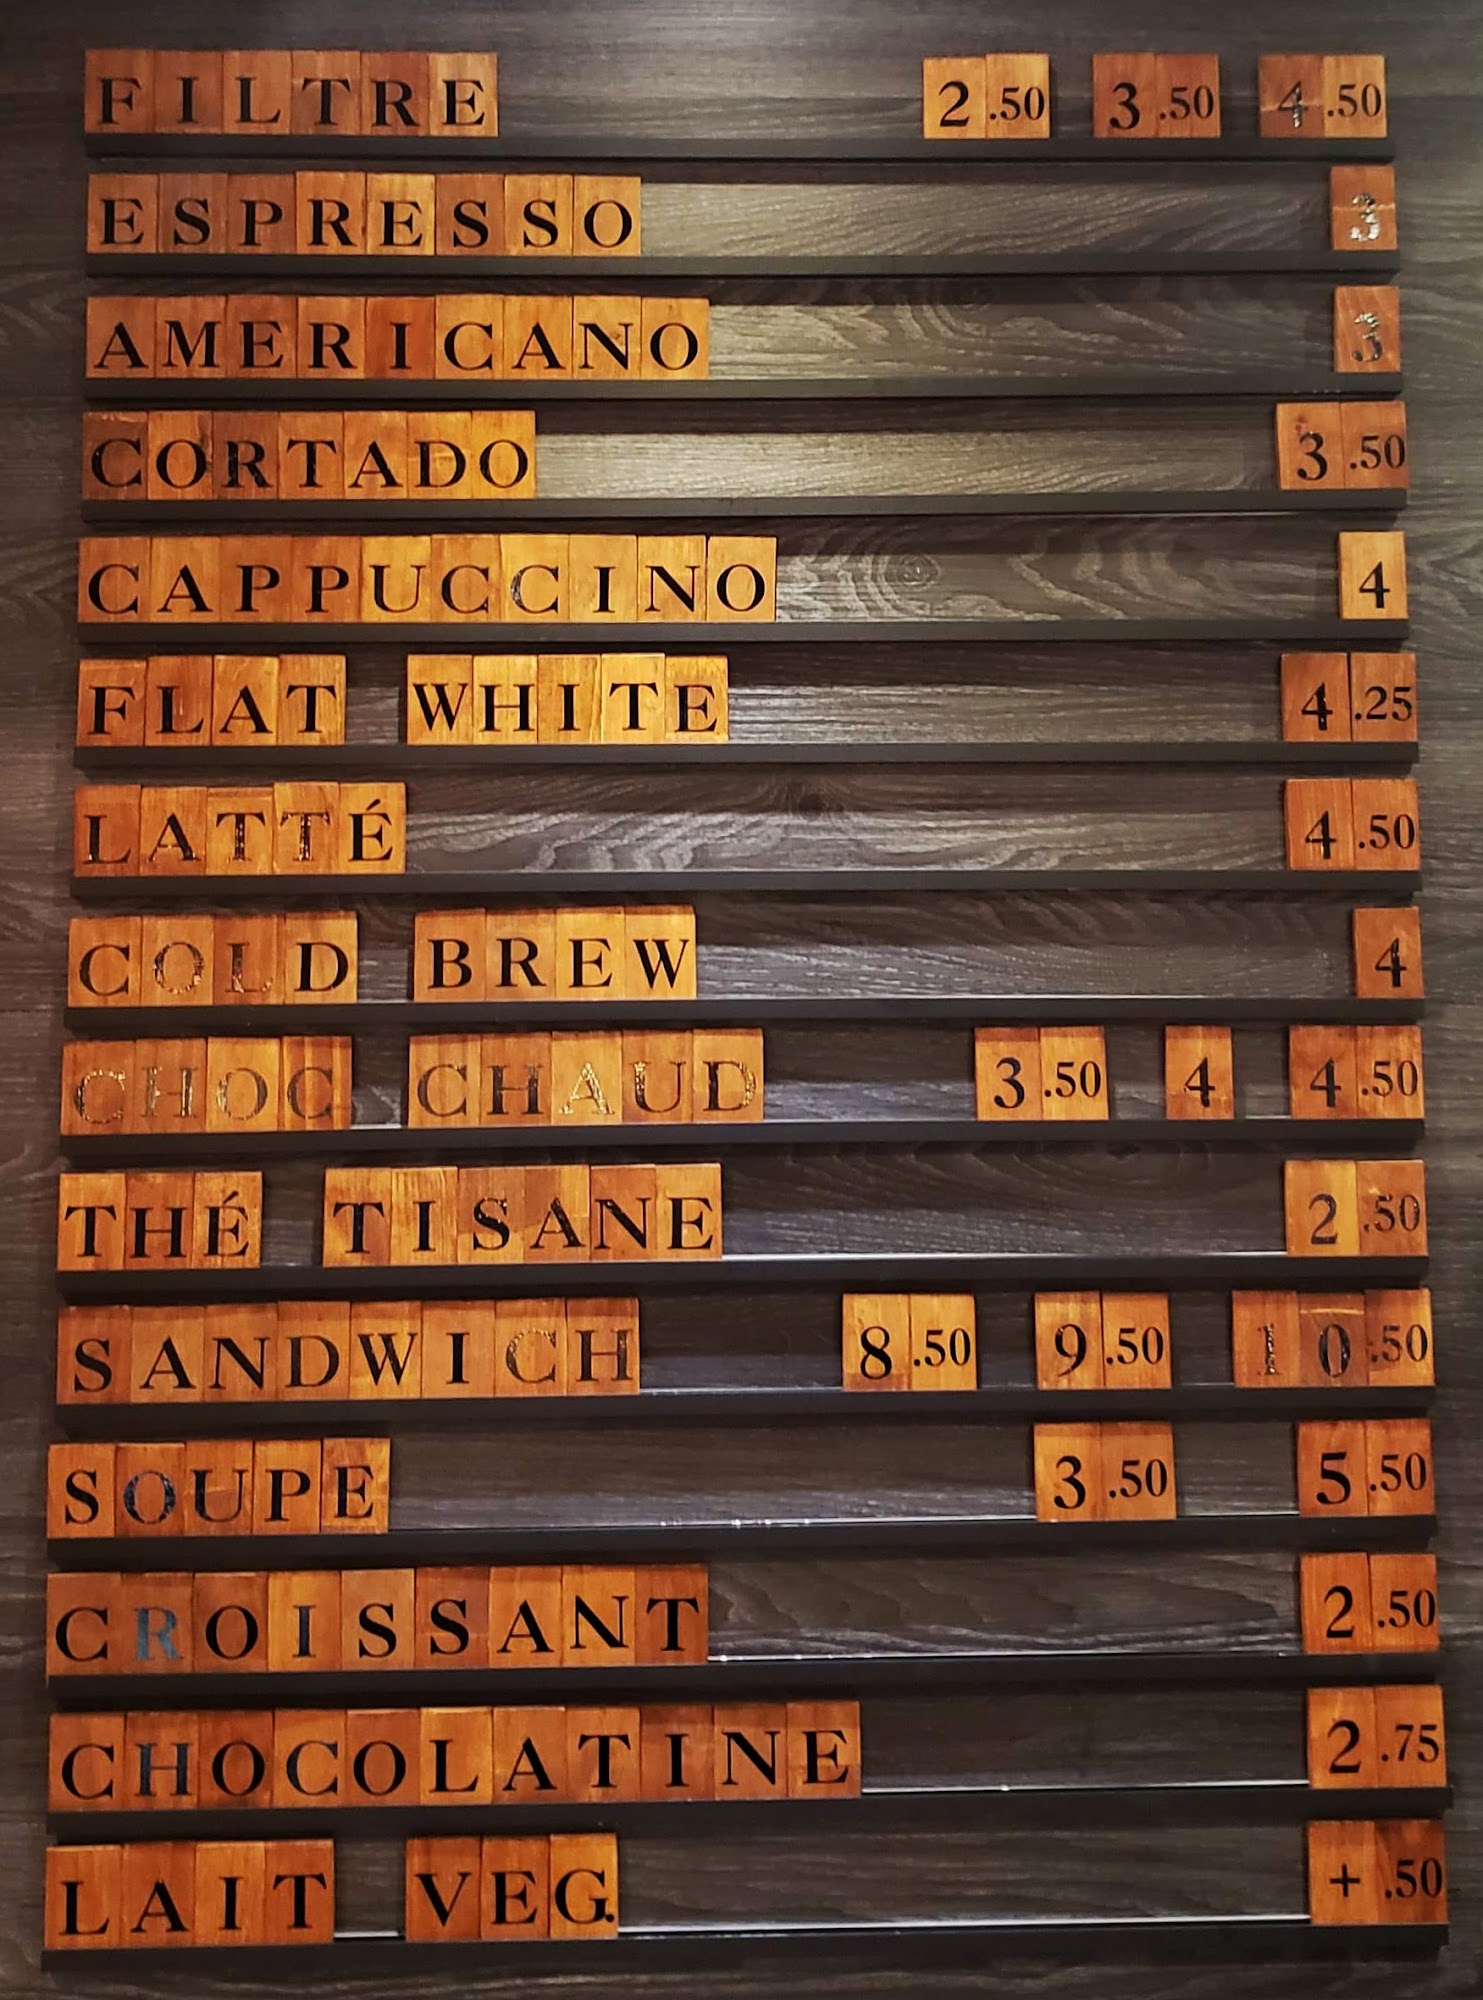 FILTRE 2.50 3.50 4.50
ESPRESSO 3
AMERICANO 3
CORTADO 3.50
CAPPUCCINO 4
FLAT WHITE 4.25
LATTÉ 4.50
COLD BREW 4
CHOC CHAUD 3.50 4 4.50
THÉ TISANE 2.50
SANDWICH 8.50 9.50 10.50
SOUPE 3.50 5.50
CROISSANT 2.50
CHOCOLATINE 2.75
LAIT VEG. +.50